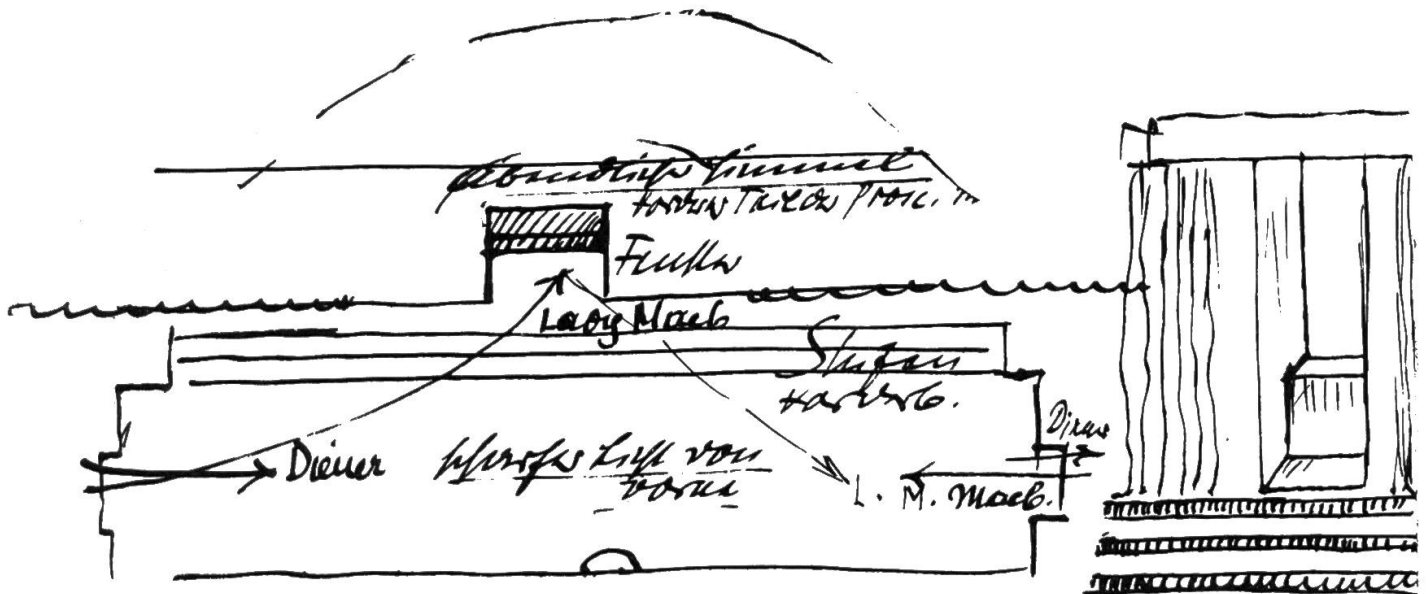 Abendlicher Himmel
Fenster
Lady Macb
Stufen
vorderb.
Diener
Diener scharfes Licht von
vorne
L. M. Macb.